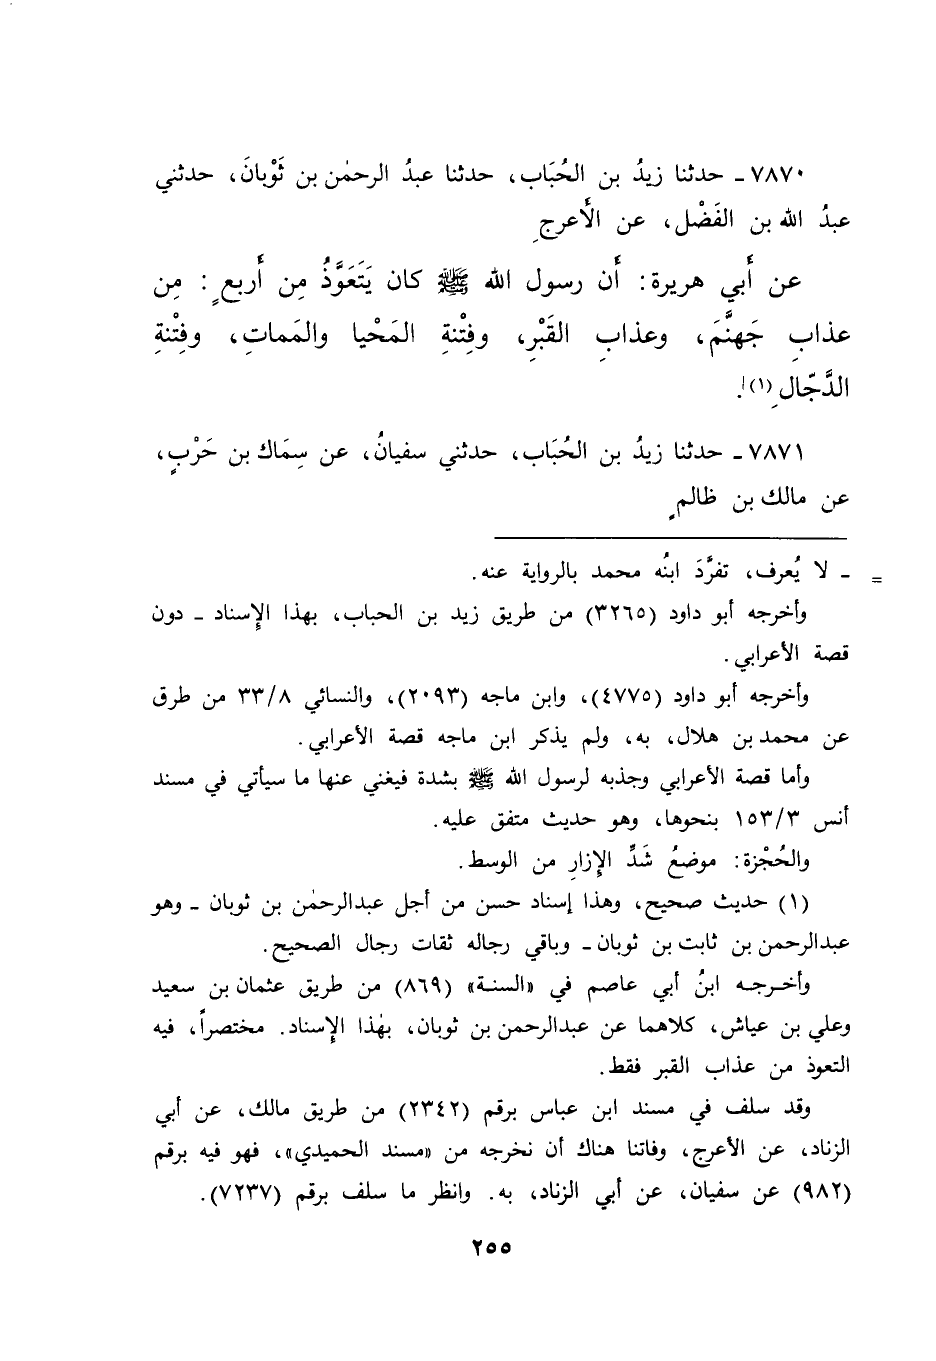 ٧٨٧٠ ـ حدثنا زيدُ بن الحُبَاب، حدثنا عبدُ الرحمٰن بن ثَوْبانَ، حدثني
عبدُ الله بن الفَضْل، عن الأَعرجِ
عن أَبي هريرة: أَن رسول الله ﷺ كان يَتَعَوَّذُ مِن أَربعٍ: مِن
عذابِ جَهنَّمَ، وعذابِ القَبْرِ، وفِتْنةِ المَحْيا والمَماتِ، وفِتْنةِ
الدَّجّالِ(١).
٧٨٧١ ـ حدثنا زيدُ بن الحُبَاب، حدثني سفيانُ، عن سِمَاك بن حَرْبٍ،
عن مالك بن ظالمٍ
= ـ لا يُعرف، تفرَّدَ ابنُه محمد بالرواية عنه.
وأخرجه أبو داود (٣٢٦٥) من طريق زيد بن الحباب، بهذا الإِسناد ـ دون
قصة الأعرابي.
وأخرجه أبو داود (٤٧٧٥)، وابن ماجه (٢٠٩٣)، والنسائي ٣٣/٨ من طرق
عن محمد بن هلال، به، ولم يذكر ابن ماجه قصة الأعرابي.
وأما قصة الأعرابي وجذبه لرسول الله ﷺ بشدة فيغني عنها ما سيأتي في مسند
أنس ١٥٣/٣ بنحوها، وهو حديث متفق عليه.
والحُجْزة: موضعُ شَدِّ الإِزارِ من الوسط.
(١) حديث صحيح، وهذا إسناد حسن من أجل عبدالرحمٰن بن ثوبان ـ وهو
عبدالرحمن بن ثابت بن ثوبان ـ وباقي رجاله ثقات رجال الصحيح.
وأخرجه ابنُ أبي عاصم في «السنة» (٨٦٩) من طريق عثمان بن سعيد
وعلي بن عياش، كلاهما عن عبدالرحمن بن ثوبان، بهٰذا الإِسناد. مختصراً، فيه
التعوذ من عذاب القبر فقط.
وقد سلف في مسند ابن عباس برقم (٢٣٤٢) من طريق مالك، عن أبي
الزناد، عن الأعرج، وفاتنا هناك أن نخرجه من «مسند الحميدي»، فهو فيه برقم
(٩٨٢) عن سفيان، عن أبي الزناد، به. وانظر ما سلف برقم (٧٢٣٧).
٢٥٥